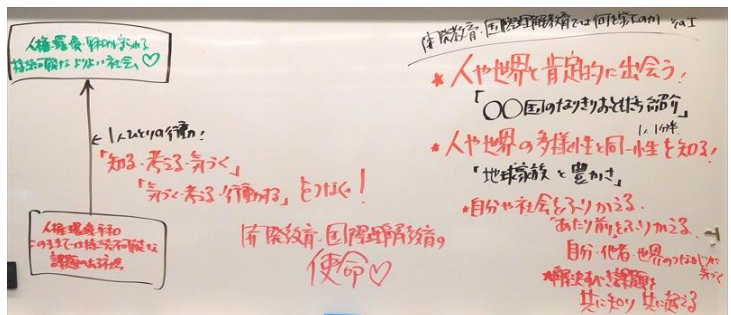 人権・環境・平和が守られる
持続可能なよりよい社会へ♡
1人ひとりの行動!
「知る・考える・気づく」
「気づく・考える・行動する」をつなぐ!
人権・環境・平和
このままでは持続不可能な
課題のある社会
開発教育・国際理解教育の
使命♡
開発教育・国際理解教育では何を学ぶのか その1
★人や世界と肯定的に出会う!
「〇〇国のなりきりおともだち紹介」
1人1分半
★人や世界の多様性と同一性を知る!
「地球家族と豊かさ」
★自分や社会をふりかえる
「あたり前」をふりかえる
自分・他者・世界のつながりに
気づく
★解決すべき課題を
共に知り 共に超える